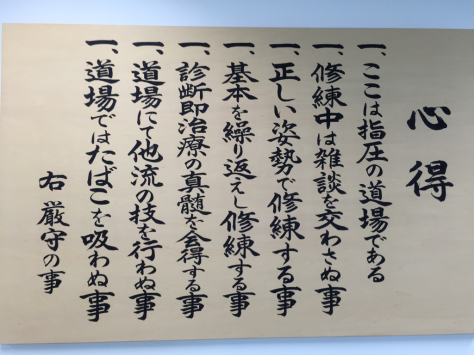 心得
一、ここは指圧の道場である
一、修練中は雑談を交わさぬ事
一、正しい姿勢で修練する事
一、基本を繰り返えし修練する事
一、診断即治療の真髄を会得する事
一、道場にて他流の技を行わぬ事
一、道場ではたばこを吸わぬ事
右厳守の事